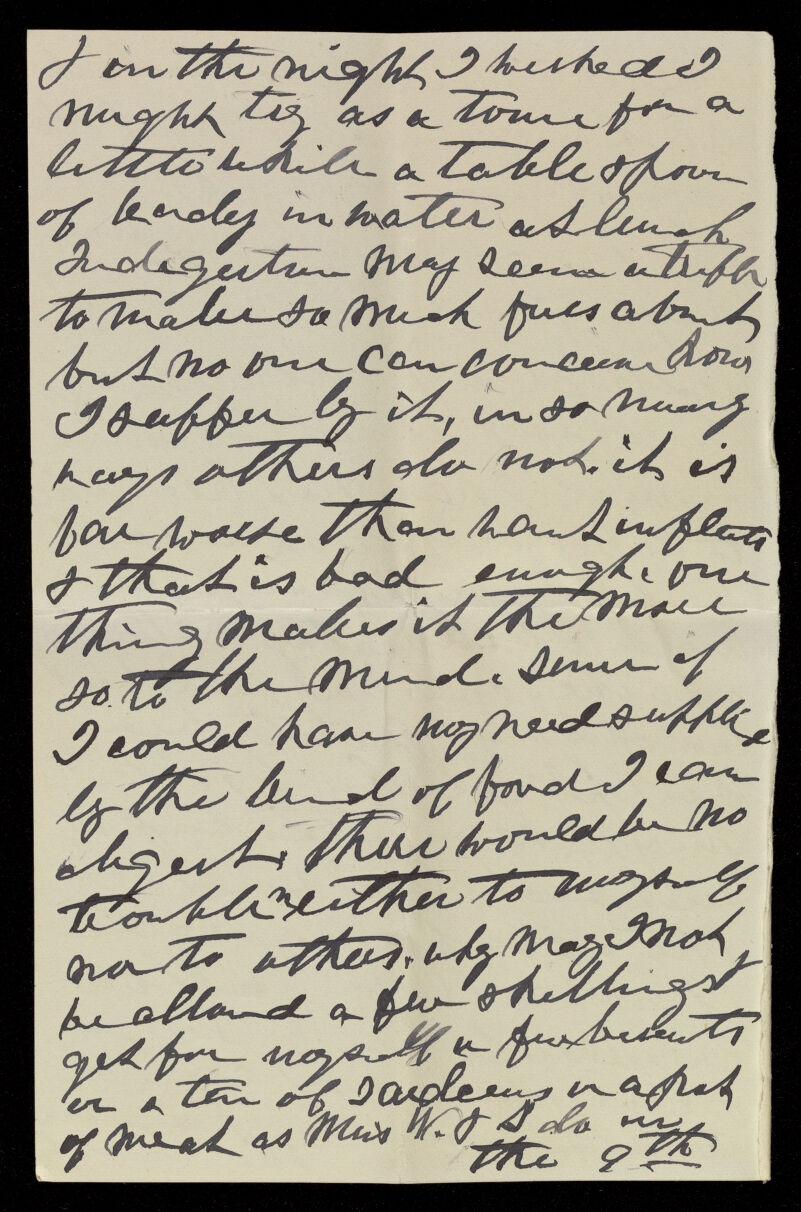 & in the night, I wished I
might try as a tonic for a
little while a table spoon
of brandy in water at lunch
Indigestion may seem a trifle
to make so much fuss about
but no one can conceive how
I suffer by it, in so many
ways others do not. it is
far worse than
& that is bad enough. one
thing makes it the more
so to the mind. since if
I could have my need supplie
by the kind of food I can
digest, there would be no
trouble neither to myself
nor to others. why may I not
be allowed a few shillings t
get for myself a few biscuits
or a tin of Sardeens or a pot
of meat as Miss W. & S do in
the 9th